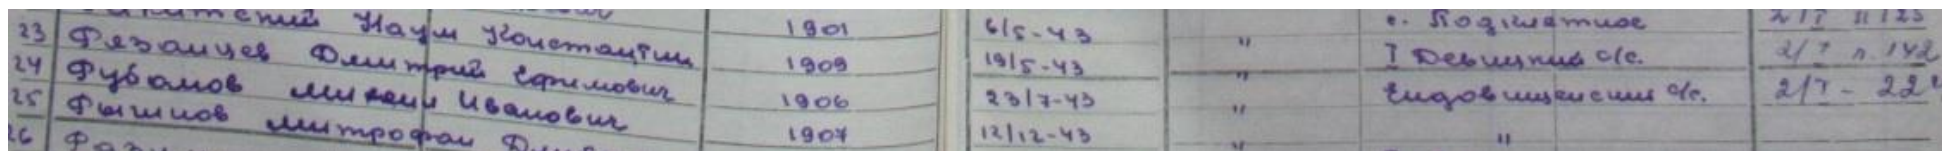 Ракитский Наум Константин 1901 6/5-43 " с. Подклетное
23 Рязанцев Дмитрий Ефимович 1909 19/5-43 " I Девицкий с/с. 2/I п. 142
24 Рубанов Михаил Иванович 1906 23/7-43 " Ендовищенский с/с.
25 Рышков Митрофан 1907 12/12-43 " "
26